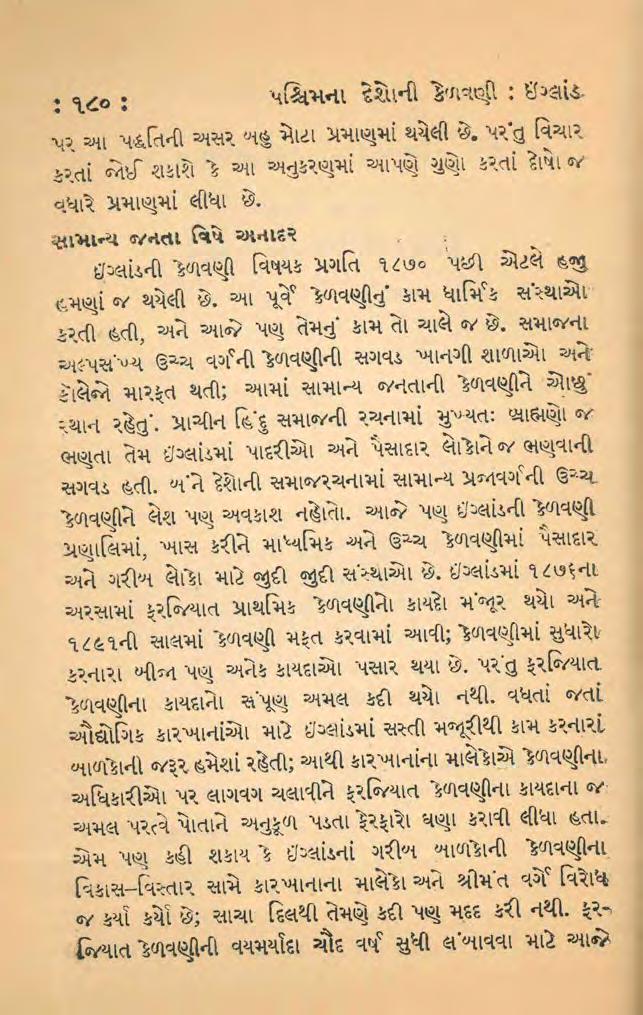 : ૧૮૦ : પશ્ચિમના દેશોની કેળવણી : ઇંગ્લાંડ
પર આ પદ્ધતિની અસર બહુ મોટા પ્રમાણમાં થયેલી છે. પરંતુ વિચાર
કરતાં જોઈ શકાશે કે આ અનુકરણમાં આપણે ગુણો કરતાં દોષો જ
વધારે પ્રમાણમાં લીધા છે.
સામાન્ય જનતા વિષે અનાદર
ઇંગ્લાંડની કેળવણી વિષયક પ્રગતિ ૧૮૭૦ પછી એટલે હજી
હમણાં જ થયેલી છે. આ પૂર્વે કેળવણીનું કામ ધાર્મિક સંસ્થાઓ
કરતી હતી, અને આજે પણ તેમનું કામ તો ચાલે જ છે. સમાજના
અલ્પસંખ્ય ઉચ્ચ વર્ગની કેળવણીની સગવડ ખાનગી શાળાઓ અને
કૉલેજો મારફત થતી; આમાં સામાન્ય જનતાની કેળવણીને ઓછું
સ્થાન રહેતું. પ્રાચીન હિંદુ સમાજની રચનામાં મુખ્યતઃ બ્રાહ્મણો જ
ભણતા તેમ ઇંગ્લાંડમાં પાદરીઓ અને પૈસાદાર લોકોને જ ભણવાની
સગવડ હતી. બંને દેશોની સમાજરચનામાં સામાન્ય પ્રજાવર્ગની ઉચ્ચ
કેળવણીને લેશ પણ અવકાશ નહોતો. આજે પણ ઇંગ્લાંડની કેળવણી
પ્રણાલિમાં, ખાસ કરીને માધ્યમિક અને ઉચ્ચ કેળવણીમાં પૈસાદાર
અને ગરીબ લોકો માટે જુદી જુદી સંસ્થાઓ છે. ઇંગ્લાંડમાં ૧૮૭૬ના
અરસામાં ફરજિયાત પ્રાથમિક કેળવણીનો કાયદો મંજૂર થયો અને
૧૮૯૧ની સાલમાં કેળવણી મફત કરવામાં આવી; કેળવણીમાં સુધારો
કરનારા બીજા પણ અનેક કાયદાઓ પસાર થયા છે. પરંતુ ફરજિયાત
કેળવણીના કાયદાનો સંપૂણ અમલ કદી થયો નથી. વધતાં જતાં
ઔદ્યોગિક કારખાનાંઓ માટે ઇંગ્લાંડમાં સસ્તી મજૂરીથી કામ કરનારાં
બાળકોની જરૂર હમેશાં રહેતી; આથી કારખાનાંના માલેકોએ કેળવણીના
અધિકારીઓ પર લાગવગ ચલાવીને ફરજિયાત કેળવણીના કાયદાના જ
અમલ પરત્વે પોતાને અનુકૂળ પડતા ફેરફારો ઘણા કરાવી લીધા હતા.
એમ પણ કહી શકાય કે ઇંગ્લાંડનાં ગરીબ બાળકોની કેળવણીના
વિકાસ–વિસ્તાર સામે કારખાનાના માલેકો અને શ્રીમંત વર્ગે વિરોધ
જ કર્યા કર્યો છે; સાચા દિલથી તેમણે કદી પણ મદદ કરી નથી. ફર-
જિયાત કેળવણીની વયમર્યાદા ચૌદ વર્ષ સુધી લંબાવવા માટે આજે